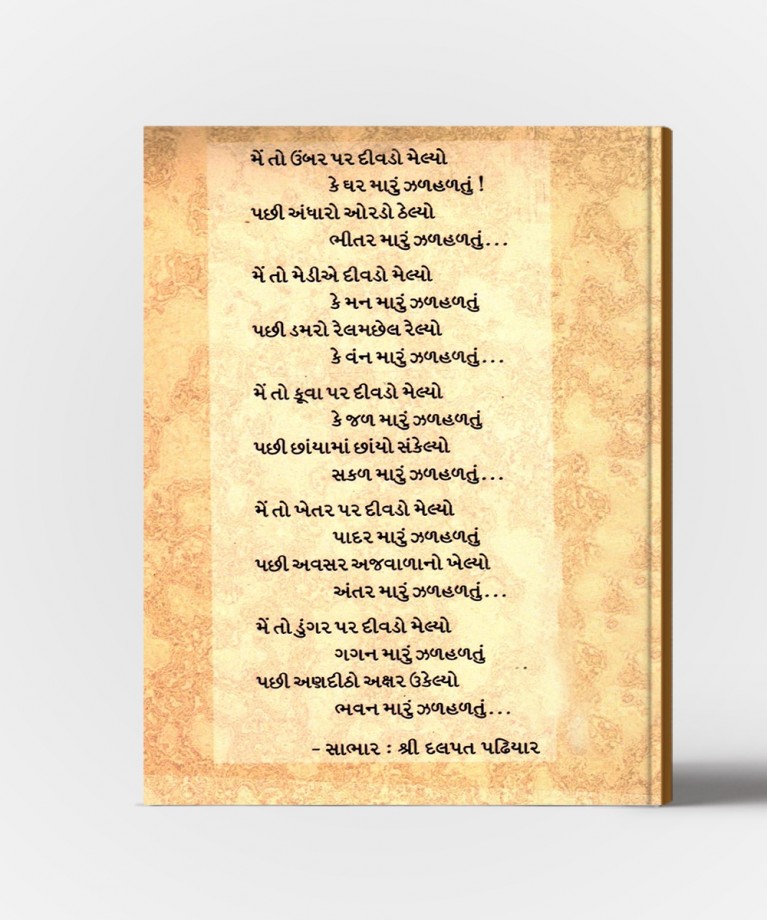 મેં તો ઉંબર પર દીવડો મેલ્યો
કે ઘર મારું ઝળહળતું !
પછી અંધારો ઓરડો ઠેલ્યો
ભીતર મારું ઝળહળતું...
મેં તો મેડીએ દીવડો મેલ્યો
કે મન મારું ઝળહળતું
પછી ડમરો રેલમછેલ રેલ્યો
કે વંન મારું ઝળહળતું...
મેં તો કૂવા પર દીવડો મેલ્યો
કે જળ મારું ઝળહળતું
પછી છાંયામાં છાંયો સંકેલ્યો
સકળ મારું ઝળહળતું...
મેં તો ખેતર પર દીવડો મેલ્યો
પાદર મારું ઝળહળતું
પછી અવસર અજવાળાનો ખેલ્યો
અંતર મારું ઝળહળતું...
મેં તો ડુંગર પર દીવડો મેલ્યો
ગગન મારું ઝળહળતું
પછી અણદીઠો અક્ષર ઉકેલ્યો
ભવન મારું ઝળહળતું...
- સાભાર : શ્રી દલપત પઢિયાર